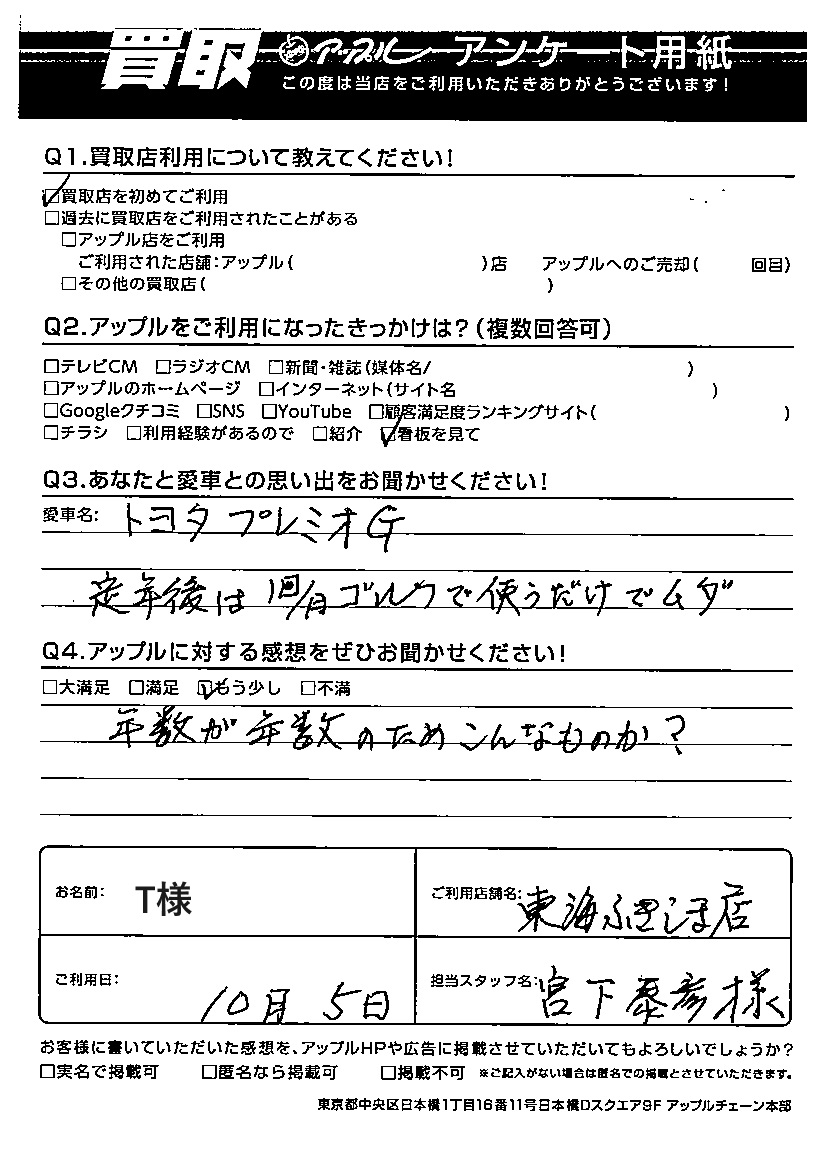 買取 アップル アンケート用紙
この度は当店をご利用いただきありがとうございます!
Q1.買取店利用について教えてください!
☑買取店を初めてご利用
□過去に買取店をご利用されたことがある
□アップル店をご利用
ご利用された店舗:アップル( )店 アップルへのご売却( 回目)
□その他の買取店( )
Q2.アップルをご利用になったきっかけは?(複数回答可)
□テレビCM □ラジオCM □新聞・雑誌(媒体名/ )
□アップルのホームページ □インターネット(サイト名 )
□Googleクチコミ □SNS □YouTube □顧客満足度ランキングサイト( )
□チラシ □利用経験があるので □紹介 ☑看板を見て
Q3.あなたと愛車との思い出をお聞かせください!
愛車名: トヨタ プレミオG
定年後は 1回/月 ゴルフで使うだけでムダ
Q4.アップルに対する感想をぜひお聞かせください!
□大満足 □満足 ☑もう少し □不満
年数が年数のためこんなものか?
お名前: T様
ご利用店舗名: 東海ふきしま店
ご利用日: 10月 5日
担当スタッフ名: 宮下泰彦様
お客様に書いていただいた感想を、アップルHPや広告に掲載させていただいてもよろしいでしょうか?
□実名で掲載可 □匿名なら掲載可 □掲載不可 ※ご記入がない場合は匿名での掲載とさせていただきます。
東京都中央区日本橋1丁目16番11号日本橋Dスクエア9F アップルチェーン本部